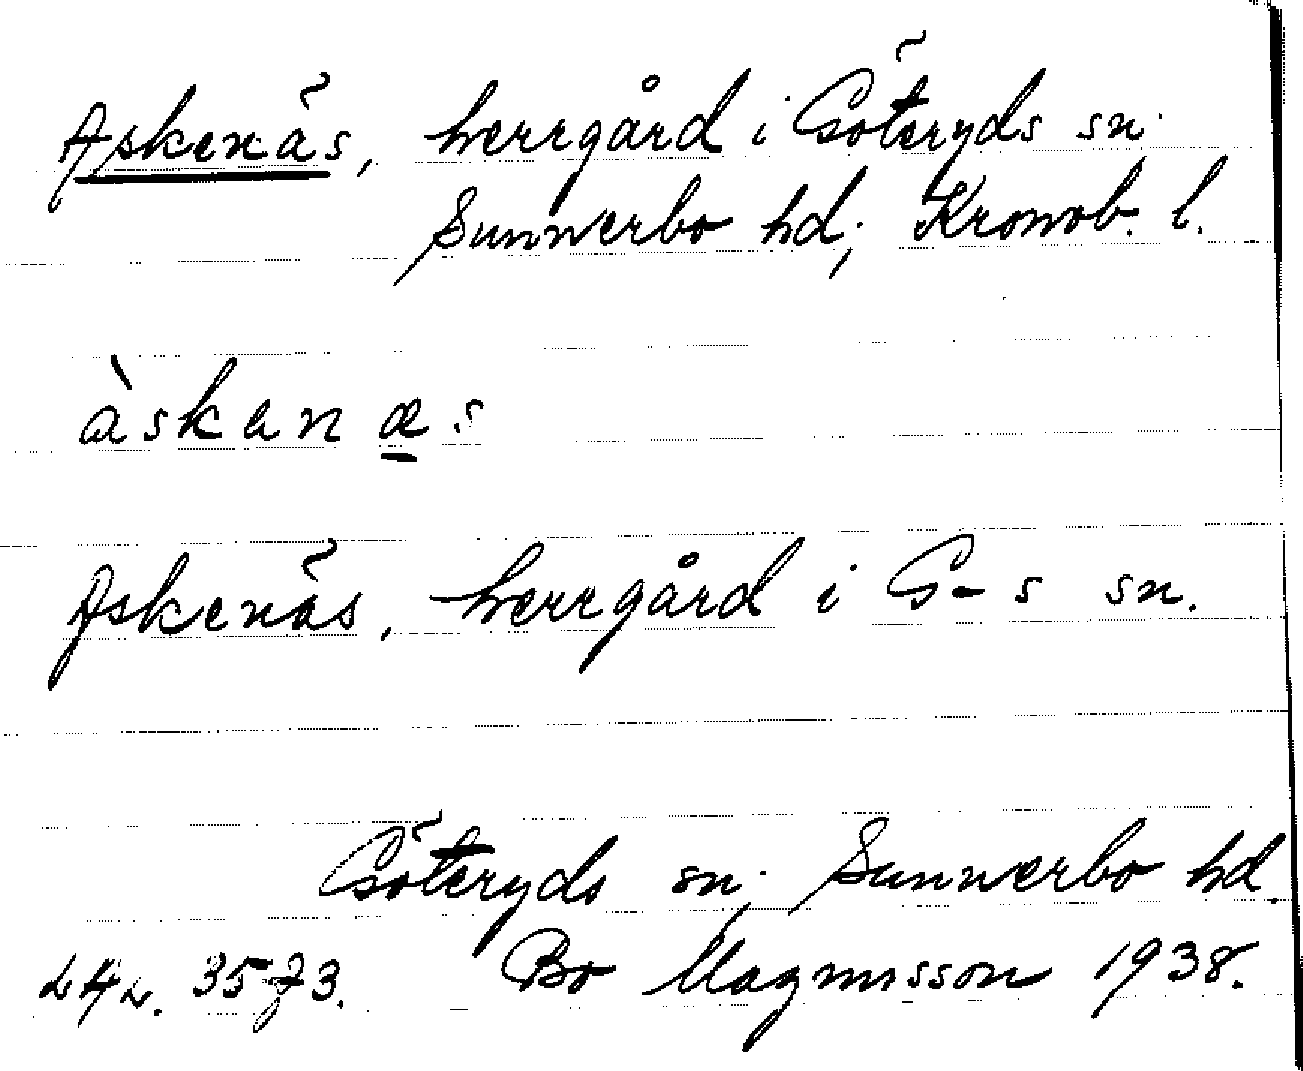 Askenäs, herrgård i Göteryds sn.
Sunnerbo hd, Kronob. l.
àskanæs
Askenäs, herrgård i G-s sn.
Göteryds sn, Sunnerbo hd.
3573. Bo Magnusson 1938.